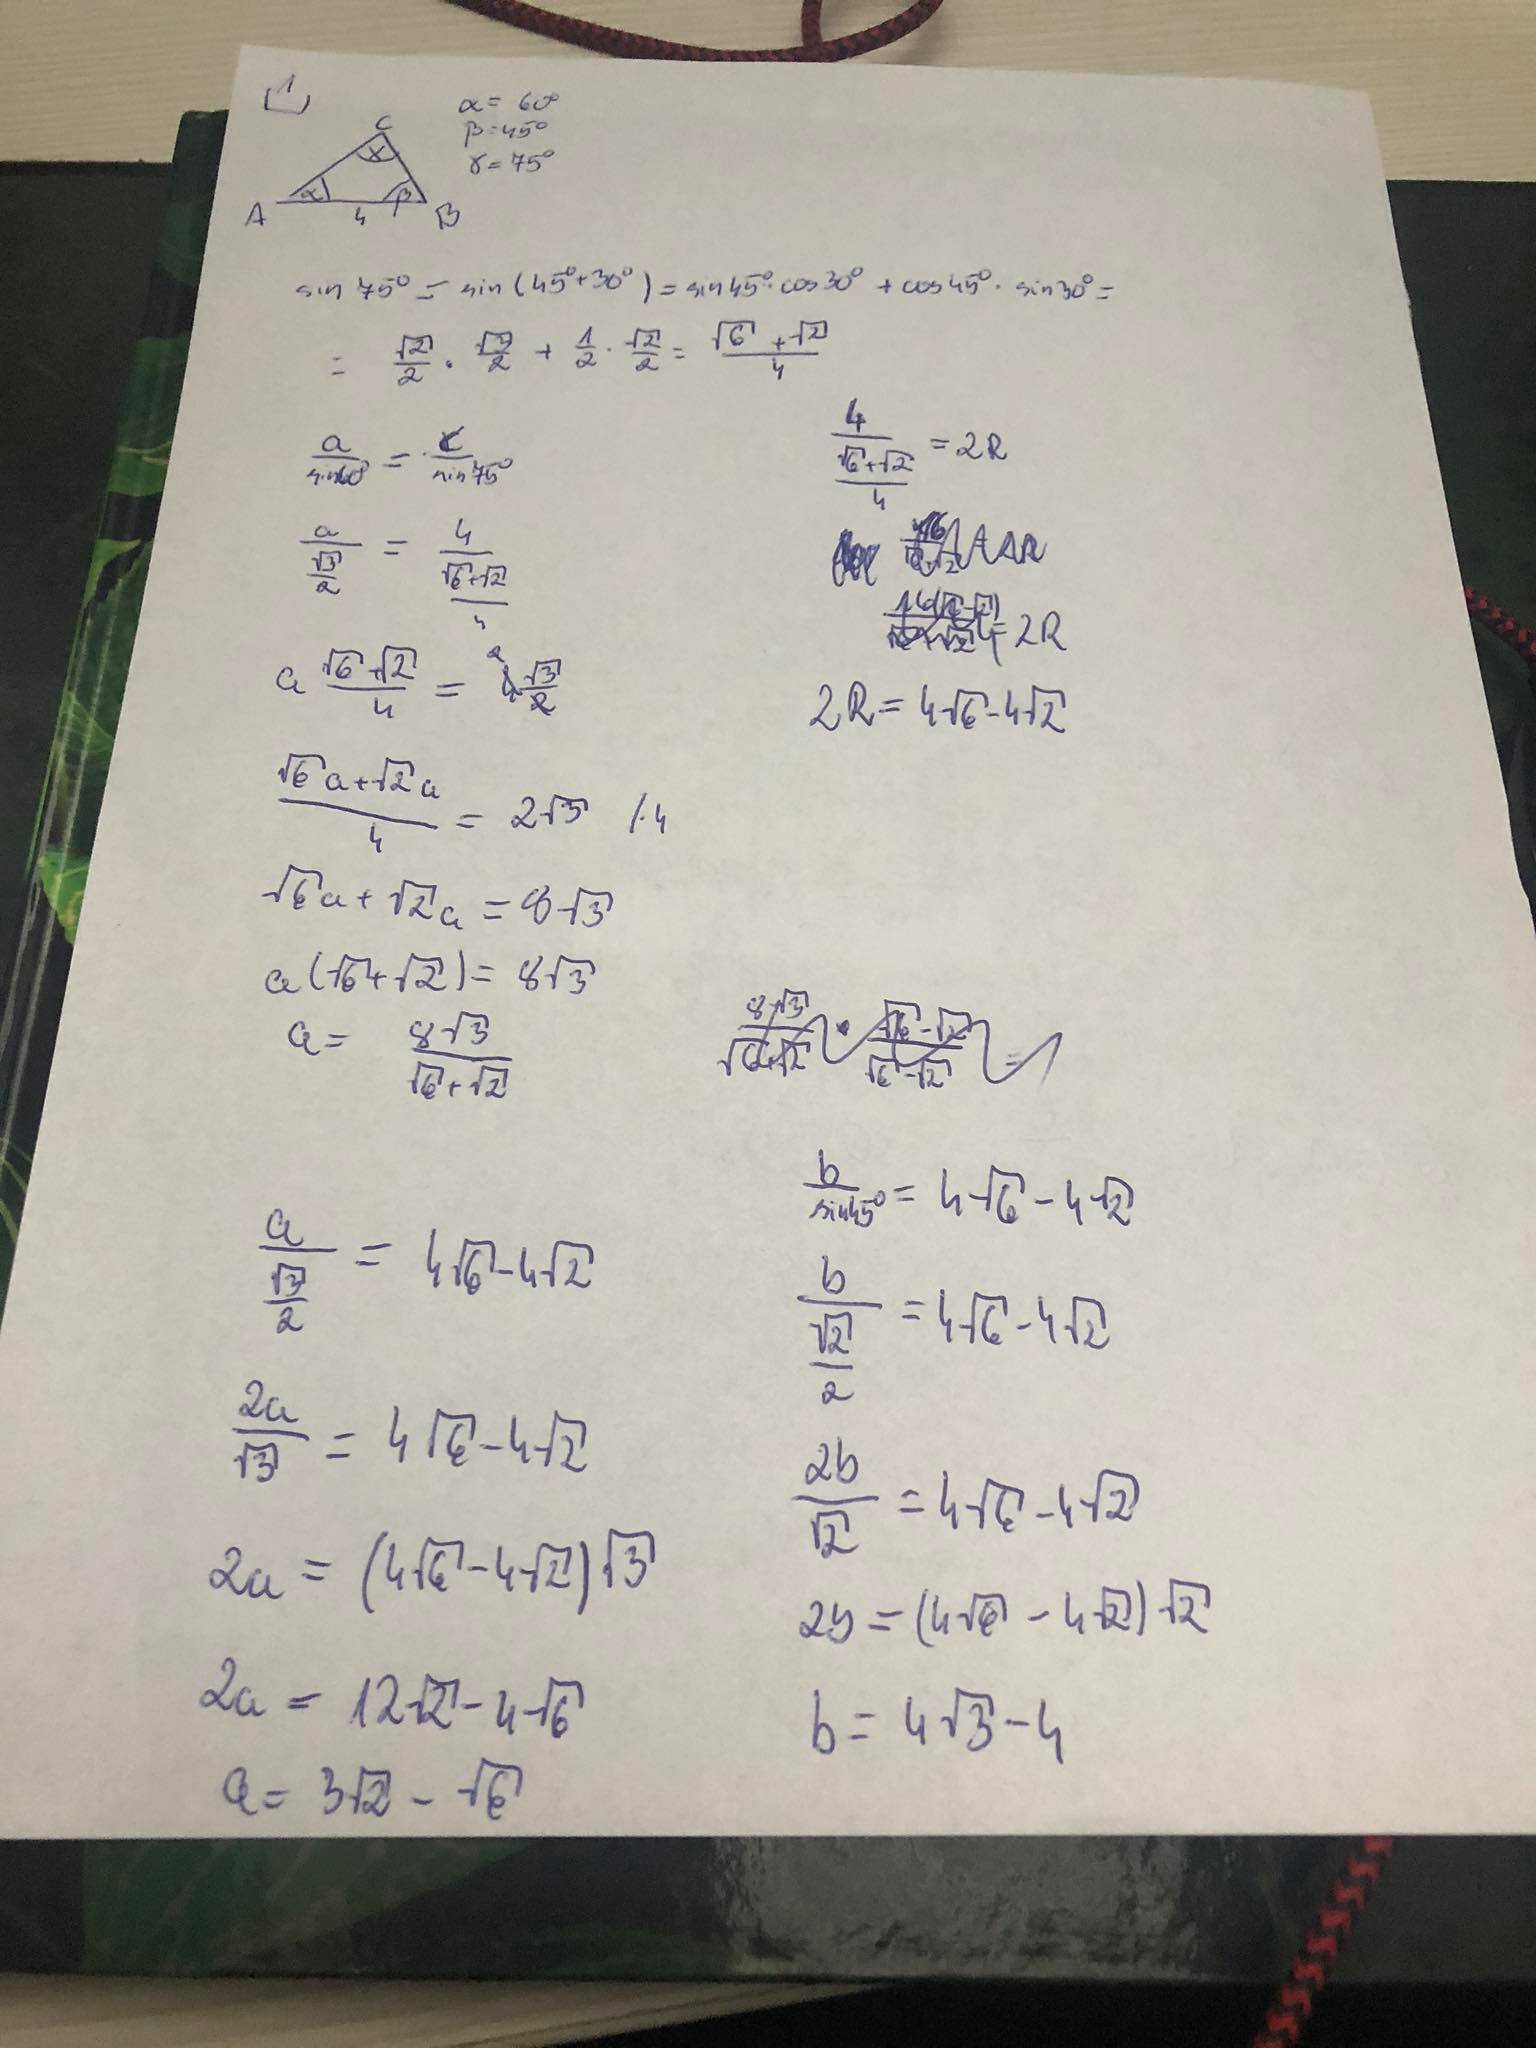 1
α = 60°
β = 45°
γ = 75°
C
γ
α
β
A
4
B
sin 75° = sin (45° + 30°) = sin 45° · cos 30° + cos 45° · sin 30° =
= √2/2 · √3/2 + 1/2 · √2/2 = (√6 + √2)/4
a/sin 60° = c/sin 75°
a/(√3/2) = 4/((√6+√2)/4)
a (√6+√2)/4 = 4 √3/2
(√6a + √2a)/4 = 2√3 /·4
√6a + √2a = 8√3
a(√6+√2) = 8√3
a = 8√3/(√6+√2)
4/((√6+√2)/4) = 2R
= 2R
2R = 4√6 - 4√2
8√3/(√6+√2) · (√6-√2)/(√6-√2) =
a/(√3/2) = 4√6 - 4√2
2a/√3 = 4√6 - 4√2
2a = (4√6 - 4√2)√3
2a = 12√2 - 4√6
a = 3√2 - √6
b/sin 45° = 4√6 - 4√2
b/(√2/2) = 4√6 - 4√2
2b/√2 = 4√6 - 4√2
2b = (4√6 - 4√2)√2
b = 4√3 - 4